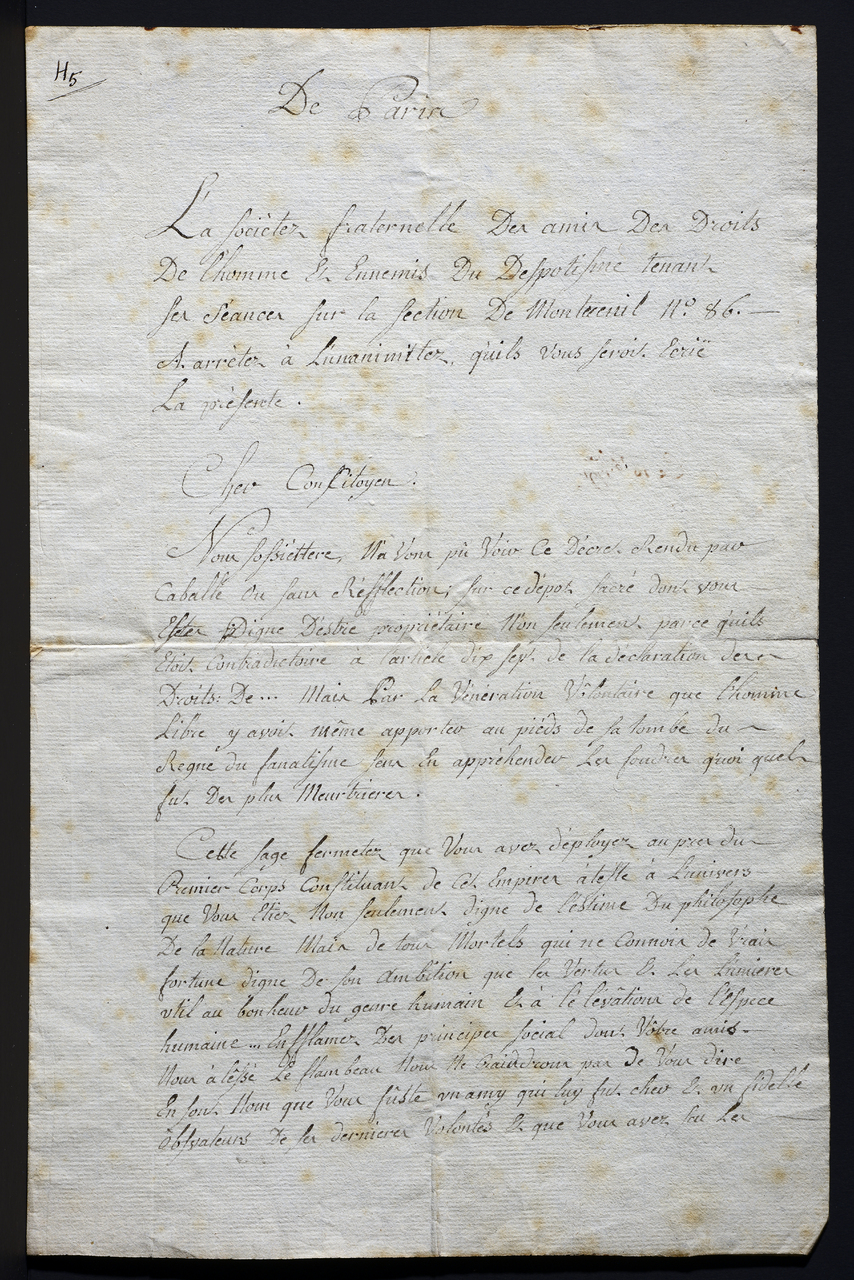 H5
De Paris
La sociétez fraternelle Des amis Des Droits
De l'homme & Ennemis Du Despotisme tenant
ses séances sur la section De Montreuil N.º 86. —
A arrêtez à L'unanimittez, quils vous seroit Ecrië
La présente.
Cher Consitoyen.
Nous sossiettere, N'a Vons pû Voir Ce Décret Rendu par
Caballe ou sans Réfflection; sur ce dépot sacré dont vous
Estes Digne D'estre propriétaire Non seulement parce quils
Etoit Contradictoire à l'article dix sept de la declaration des
Droits: De... Mais Par La Vénération Vôlontaire que l'homme
Libre y avoit même apporter au piéds de sa tombe du
Regne du fanatisme sans En appréhender Les foudres quoi quels
fut Des plus Meurtrieres.
Cette sage fermetez que Vous avez déployez au pres du
Premier Corps Constituant de Cet Empires àteste à L'univers
que Vous Etiez Non seulement digne de l'éstime Du philosophe
De la Nature Mais de tous Mortels qui ne Connois de Vrais
fortune digne De son Ambition que les Vertus & Les Lumieres
util au bonheur du genre humain & à le levâtions de l'éspece
humaine... Enfflamez Des principes social dont Vôtre amis
Nous à lessé Le flambeau Nous Ne Craindrons pas De Vous dire
En sont Nom que Vous fûste un amy qui luy fut cher & un fidelle
obsvateurs De ses dernieres Volontés & que Vous avez su Les